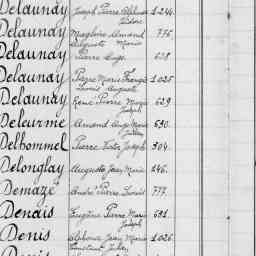 Delaunay Joseph Pierre 1.244.
Isidore
Delaunay Magloire Armand 775
Auguste Marie
Delaunay Pierre Ange 628
Delaunay Pierre Marie François 1.025
Louis Auguste
Delaunay René Pierre Marie 629
Joseph
Deleurme Armand Ange Marie 530.
Julien
Delhommel Pierre Victor Joseph 304.
Delonglay Auguste Jean Marie 146.
Demazé André Pierre Louis 777.
Denais Eugène Pierre Marie 531.
Joseph
Denis Alphonse Jean Marie 1.026.
Constant Julien